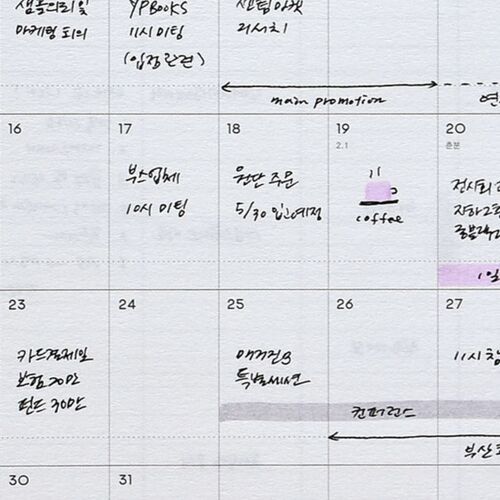 샘플의뢰 및
마케팅 회의
YPBOOKS
11시 미팅
(입점관련)
main promotion
16
17
18
19
20
2.1
춘분
부스업체
10시 미팅
원단 주문
5/30 입고예정
coffee
전시회
1일
23
24
25
26
27
카드결제일
보험 20만
펀드 30만
매거진B
특별세션
11시
컨퍼런스
부산
30
31